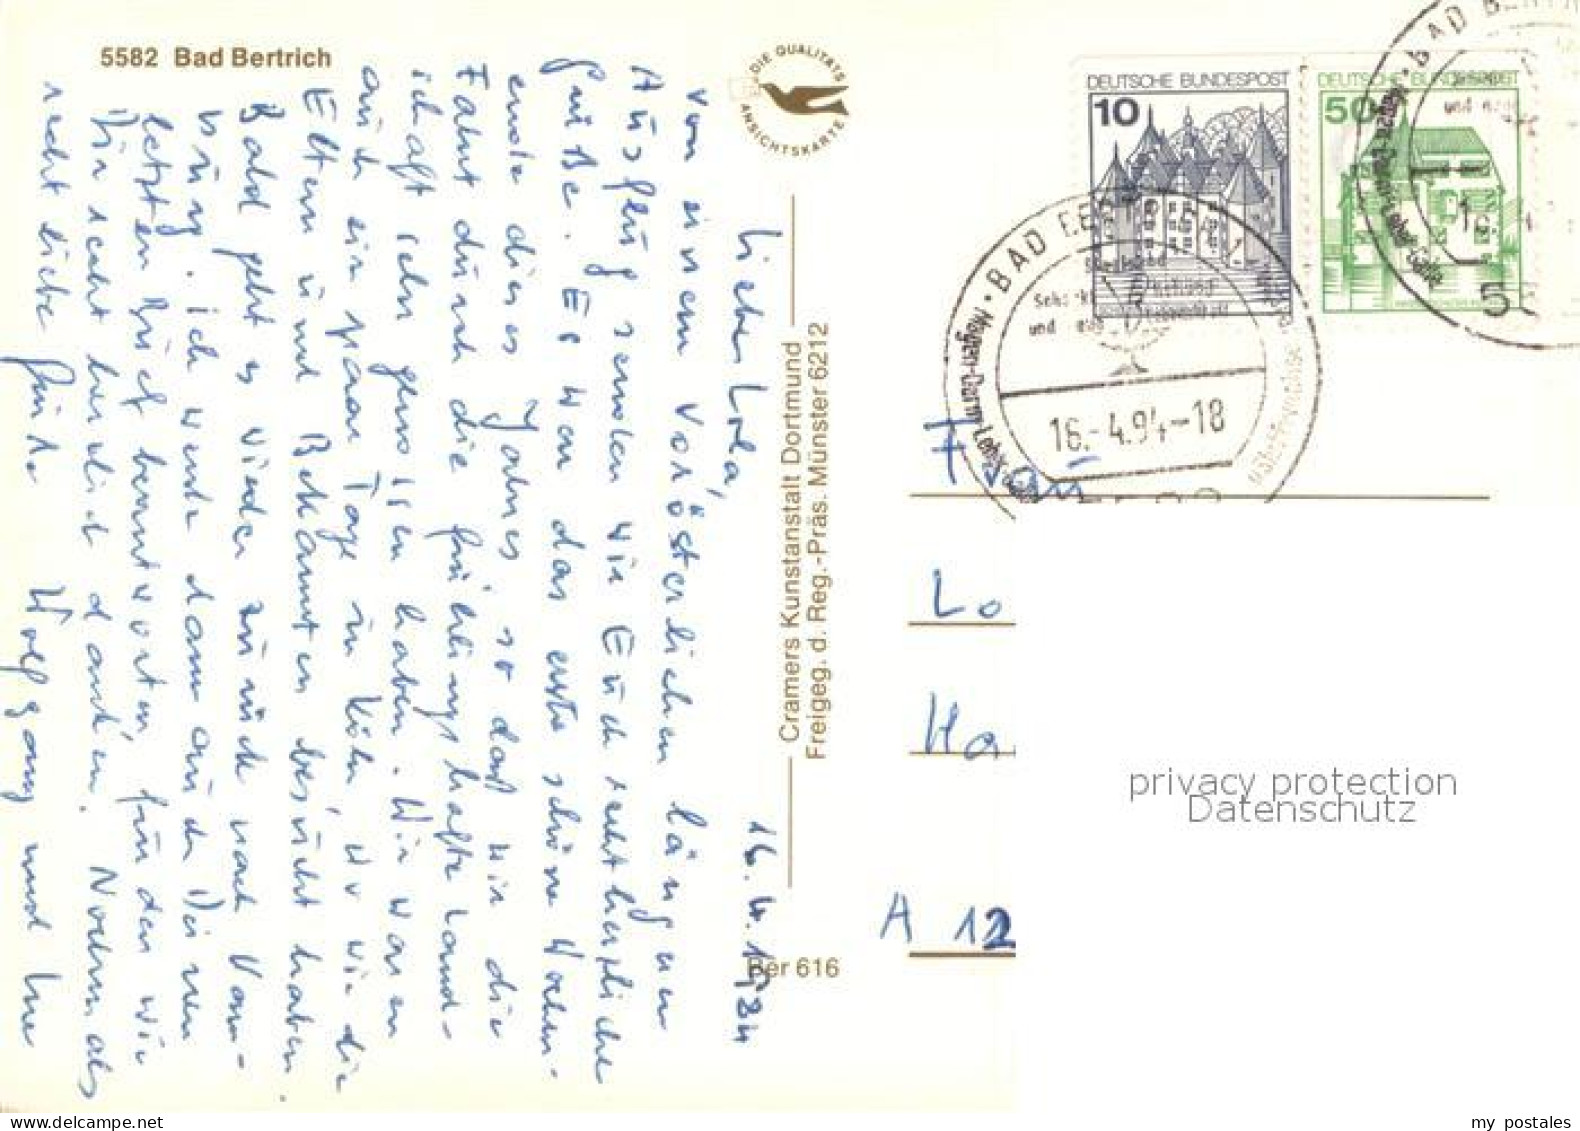 5582 Bad Bertrich
DIE QUALITÄTS
ANSICHTSKARTE
16.4.1984
Liebe Lola,
von einem vorösterlichen längeren
Ausflug senden wir Euch recht herzliche
Grüße. Es war das erste schöne Wochen-
ende dieses Jahres, so daß wir die
Fahrt durch die frühlingshafte Land-
schaft sehr genossen haben. Wir waren
auch ein paar Tage in Köln, wo wir die
Eltern und Bekannten besucht haben.
Bald geht es wieder zurück nach
Ich werde dann auch Deinen
letzten Brief beantworten, für den wir
Dir recht herzlich danken. Nochmals
recht liebe Grüße Wolfgang und
Cramers Kunstanstalt Dortmund
Freigeg. d. Reg.-Präs. Münster 6212
Ber 616
DEUTSCHE BUNDESPOST
10
DEUTSCHE BUNDESPOST
50
BAD BERTRICH
Magen-Darm-Leber-Galle
16.-4.94-18
Frau
Lo
Ha
A 12
privacy protection
Datenschutz
my postales